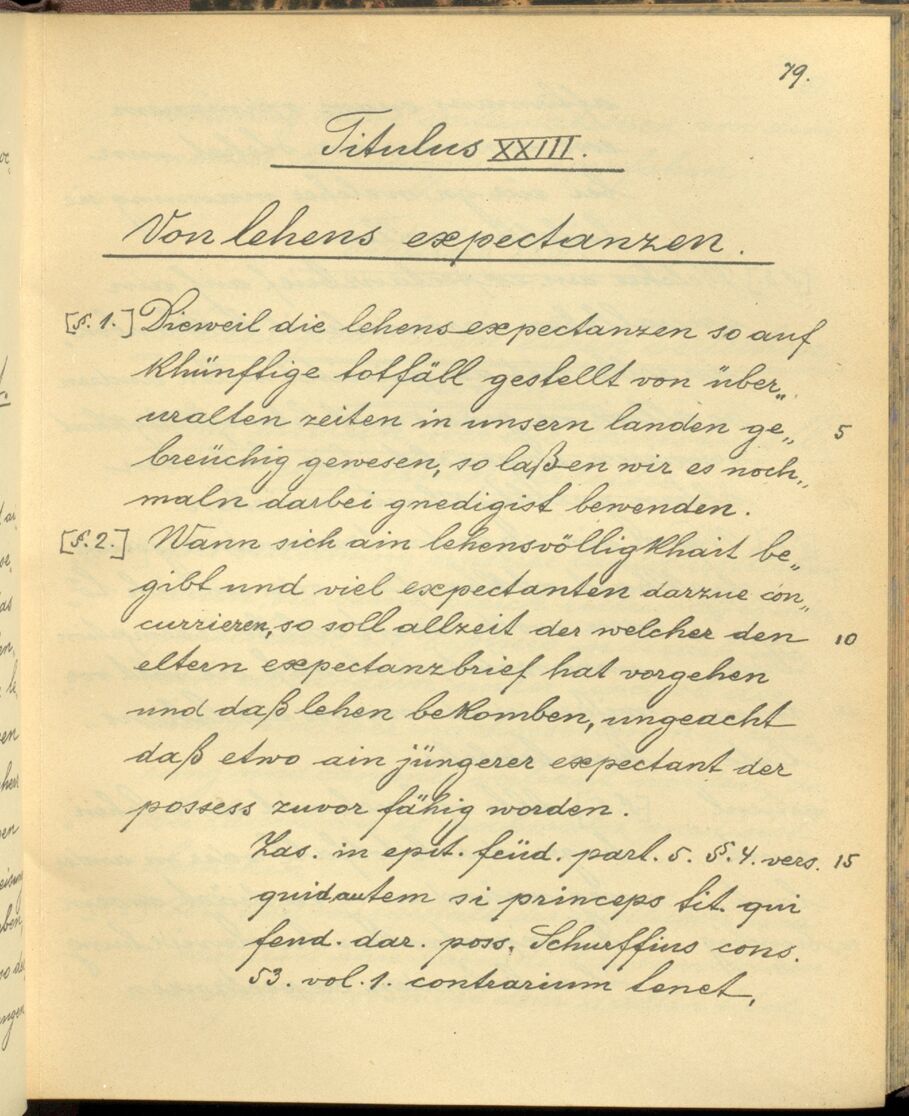 79.
Titulus XXIII.
Von lehens expectanzen.
[§. 1.] Dieweil die lehens expectanzen so auf
khünftige totfäll gestellt von über„
uralten zeiten in unsern landen ge„ 5
breüchig gewesen, so laßen wir es noch„
maln darbei gnedigist bewenden.
[§. 2.] Wann sich ain lehensvölligkhait be„
gibt und viel expectanten darzue con„
currieren, so soll allzeit der welcher den 10
eltern expectanzbrief hat vorgehen
und daß lehen bekomben, ungeacht
daß etwo ain jüngerer expectant der
possess zuvor fähig worden.
Zas. in epit. feüd. part. 5. §. 4. vers. 15
quid autem si princeps tit. qui
feud. dar. poss. Schurffius cons.
53. vol. 1. contrarium tenet,